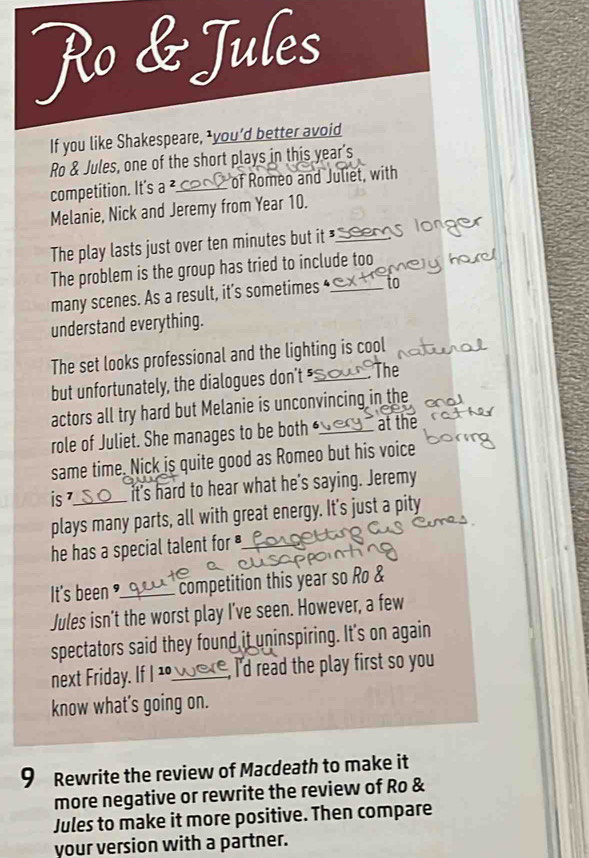 Ro & Jules
If you like Shakespeare, ¹you'd better avoid
Ro & Jules, one of the short plays in this year's
competition. It's a ² confusing version of Romeo and Juliet, with
Melanie, Nick and Jeremy from Year 10.
The play lasts just over ten minutes but it ³ seems longer
The problem is the group has tried to include too
many scenes. As a result, it's sometimes ⁴ extremely hard to
understand everything.
The set looks professional and the lighting is cool
but unfortunately, the dialogues don't ⁵ sound natural. The
actors all try hard but Melanie is unconvincing in the
role of Juliet. She manages to be both ⁶ very and rather boring at the
same time. Nick is quite good as Romeo but his voice
is ⁷ so quiet it's hard to hear what he's saying. Jeremy
plays many parts, all with great energy. It's just a pity
he has a special talent for ⁸ forgetting his lines.
It's been ⁹ quite a disappointing competition this year so Ro &
Jules isn't the worst play I've seen. However, a few
spectators said they found it uninspiring. It's on again
next Friday. If I ¹⁰ were you, I'd read the play first so you
know what's going on.
9 Rewrite the review of Macdeath to make it
more negative or rewrite the review of Ro &
Jules to make it more positive. Then compare
your version with a partner.